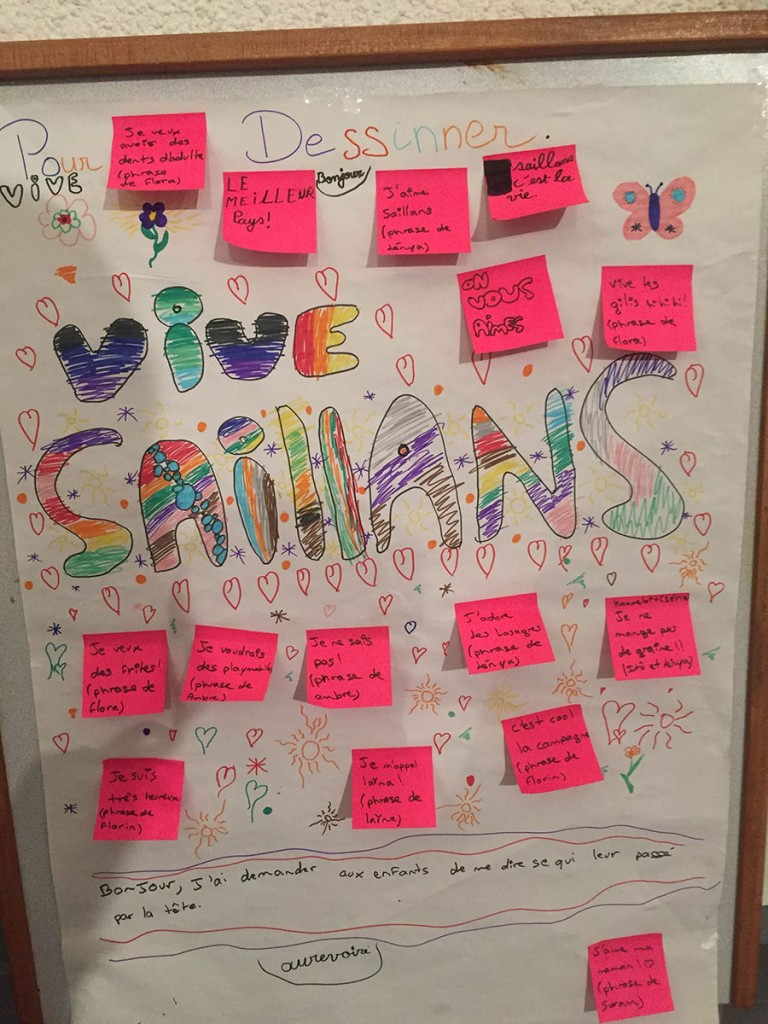 Pour Dessinner.
VIVE
Je veux
avoir des
dents d'adulte
(phrase
de flora)
LE
MEILLEUR
Pays!
Bonjour
J'aime
Saillans
(phrase de
saillans
c'est la
vie.
ON
VOUS
AIMES
Vive les
hihihi!
(phrase de
flora)
VIVE
SAillANS
Je veux
des frites!
(phrase de
flora)
Je voudrais
des playmobiles
(phrase de
Ambre)
Je ne sais
pas!
(phrase de
ambre)
J'adore
les lasagnes
(phrase de
Je ne
mange pas
de graine!!
Je suis
très heureux
(phrase de
florin)
Je m'appel
laïna!
(phrase de
laïna)
c'est cool
la campagne
(phrase de
florin)
BonJour, J'ai demander aux enfants de me dire se qui leur passé
par la tête.
aurevoire
J'aime ma
maman!
(phrase de